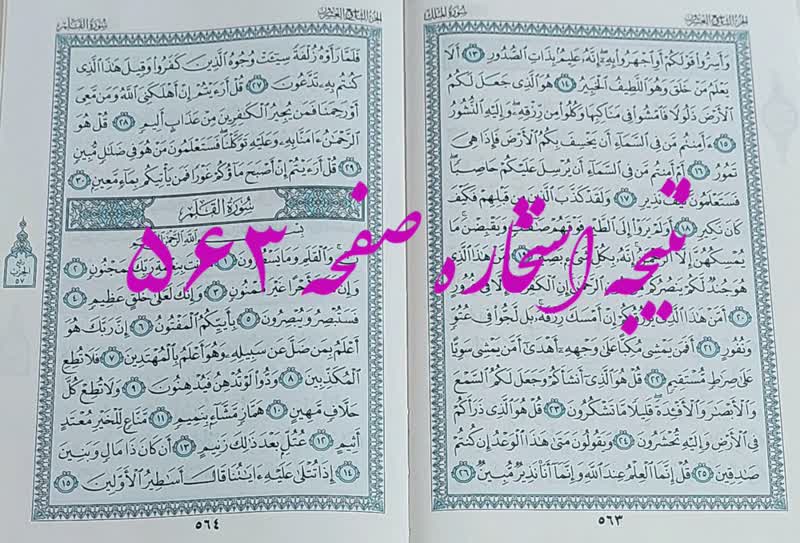 سُورَةُ المُلْكِ
الجُزءُ التَّاسِعُ وَالعِشْرُونَ
وَأَسِرُّوا۟ قَوْلَكُمْ أَوِ ٱجْهَرُوا۟ بِهِۦٓ إِنَّهُۥ عَلِيمٌۢ بِذَاتِ ٱلصُّدُورِ ١٣ أَلَا
يَعْلَمُ مَنْ خَلَقَ وَهُوَ ٱللَّطِيفُ ٱلْخَبِيرُ ١٤ هُوَ ٱلَّذِى جَعَلَ لَكُمُ
ٱلْأَرْضَ ذَلُولًا فَٱمْشُوا۟ فِى مَنَاكِبِهَا وَكُلُوا۟ مِن رِّزْقِهِۦ وَإِلَيْهِ ٱلنُّشُورُ
١٥ ءَأَمِنتُم مَّن فِى ٱلسَّمَآءِ أَن يَخْسِفَ بِكُمُ ٱلْأَرْضَ فَإِذَا هِىَ
تَمُورُ ١٦ أَمْ أَمِنتُم مَّن فِى ٱلسَّمَآءِ أَن يُرْسِلَ عَلَيْكُمْ حَاصِبًا
فَسَتَعْلَمُونَ كَيْفَ نَذِيرِ ١٧ وَلَقَدْ كَذَّبَ ٱلَّذِينَ مِن قَبْلِهِمْ فَكَيْفَ
كَانَ نَكِيرِ ١٨ أَوَلَمْ يَرَوْا۟ إِلَى ٱلطَّيْرِ فَوْقَهُمْ صَٰٓفَّٰتٍ وَيَقْبِضْنَ مَا
يُمْسِكُهُنَّ إِلَّا ٱلرَّحْمَٰنُ إِنَّهُۥ بِكُلِّ شَىْءٍۭ بَصِيرٌ ١٩ أَمَّنْ هَٰذَا ٱلَّذِى
هُوَ جُندٌ لَّكُمْ يَنصُرُكُم مِّن دُونِ ٱلرَّحْمَٰنِ إِنِ ٱلْكَٰفِرُونَ إِلَّا فِى غُرُورٍ
٢٠ أَمَّنْ هَٰذَا ٱلَّذِى يَرْزُقُكُمْ إِنْ أَمْسَكَ رِزْقَهُۥ بَل لَّجُّوا۟ فِى عُتُوٍّ
وَنُفُورٍ ٢١ أَفَمَن يَمْشِى مُكِبًّا عَلَىٰ وَجْهِهِۦٓ أَهْدَىٰٓ أَمَّن يَمْشِى سَوِيًّا
عَلَىٰ صِرَٰطٍ مُّسْتَقِيمٍ ٢٢ قُلْ هُوَ ٱلَّذِىٓ أَنشَأَكُمْ وَجَعَلَ لَكُمُ ٱلسَّمْعَ
وَٱلْأَبْصَٰرَ وَٱلْأَفْـِٔدَةَ قَلِيلًا مَّا تَشْكُرُونَ ٢٣ قُلْ هُوَ ٱلَّذِى ذَرَأَكُمْ
فِى ٱلْأَرْضِ وَإِلَيْهِ تُحْشَرُونَ ٢٤ وَيَقُولُونَ مَتَىٰ هَٰذَا ٱلْوَعْدُ إِن كُنتُمْ
صَٰدِقِينَ ٢٥ قُلْ إِنَّمَا ٱلْعِلْمُ عِندَ ٱللَّهِ وَإِنَّمَآ أَنَا۠ نَذِيرٌ مُّبِينٌ ٢٦
٥٦٣
الجُزءُ التَّاسِعُ وَالعِشْرُونَ
سُورَةُ القَلَمِ
فَلَمَّا رَأَوْهُ زُلْفَةً سِيٓـَٔتْ وُجُوهُ ٱلَّذِينَ كَفَرُوا۟ وَقِيلَ هَٰذَا ٱلَّذِى
كُنتُم بِهِۦ تَدَّعُونَ ٢٧ قُلْ أَرَءَيْتُمْ إِنْ أَهْلَكَنِىَ ٱللَّهُ وَمَن مَّعِىَ
أَوْ رَحِمَنَا فَمَن يُجِيرُ ٱلْكَٰفِرِينَ مِنْ عَذَابٍ أَلِيمٍ ٢٨ قُلْ هُوَ
ٱلرَّحْمَٰنُ ءَامَنَّا بِهِۦ وَعَلَيْهِ تَوَكَّلْنَا فَسَتَعْلَمُونَ مَنْ هُوَ فِى ضَلَٰلٍ مُّبِينٍ
٢٩ قُلْ أَرَءَيْتُمْ إِنْ أَصْبَحَ مَآؤُكُمْ غَوْرًا فَمَن يَأْتِيكُم بِمَآءٍ مَّعِينٍۭ ٣٠
سُورَةُ القَلَمِ
بِسْمِ ٱللَّهِ ٱلرَّحْمَٰنِ ٱلرَّحِيمِ
وَٱلْقَلَمِ وَمَا يَسْطُرُونَ ١ مَآ أَنتَ بِنِعْمَةِ رَبِّكَ بِمَجْنُونٍ ٢
وَإِنَّ لَكَ لَأَجْرًا غَيْرَ مَمْنُونٍ ٣ وَإِنَّكَ لَعَلَىٰ خُلُقٍ عَظِيمٍ ٤
فَسَتُبْصِرُ وَيُبْصِرُونَ ٥ بِأَييِّكُمُ ٱلْمَفْتُونُ ٦ إِنَّ رَبَّكَ هُوَ
أَعْلَمُ بِمَن ضَلَّ عَن سَبِيلِهِۦ وَهُوَ أَعْلَمُ بِٱلْمُهْتَدِينَ ٧ فَلَا تُطِعِ
ٱلْمُكَذِّبِينَ ٨ وَدُّوا۟ لَوْ تُدْهِنُ فَيُدْهِنُونَ ٩ وَلَا تُطِعْ كُلَّ
حَلَّافٍ مَّهِينٍ ١٠ هَمَّازٍ مَّشَّآءٍۭ بِنَمِيمٍ ١١ مَّنَّاعٍ لِّلْخَيْرِ مُعْتَدٍ
أَثِيمٍ ١٢ عُتُلٍّۭ بَعْدَ ذَٰلِكَ زَنِيمٍ ١٣ أَن كَانَ ذَا مَالٍ وَبَنِينَ
١٤ إِذَا تُتْلَىٰ عَلَيْهِ ءَايَٰتُنَا قَالَ أَسَٰطِيرُ ٱلْأَوَّلِينَ ١٥
٥٦٤
الحزب
٥٧
نتیجه استخاره صفحه ۵۶۳